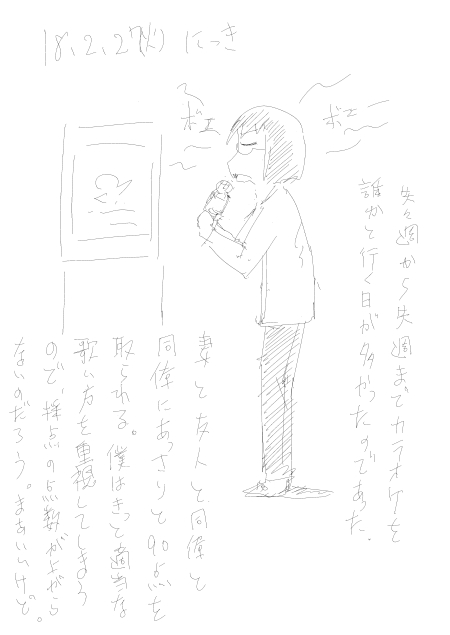 18.2.27(火) にっき
ボエ
ボエー
先々週から先週までカラオケを
誰かと行く日が多かったのであった。
妻と友人と同僚と
同僚にあっさりと90点を
取られる。僕はきっと適当な
歌い方を重視してしまう
ので、採点の点数が上がら
ないのだろう。まあいいけど。